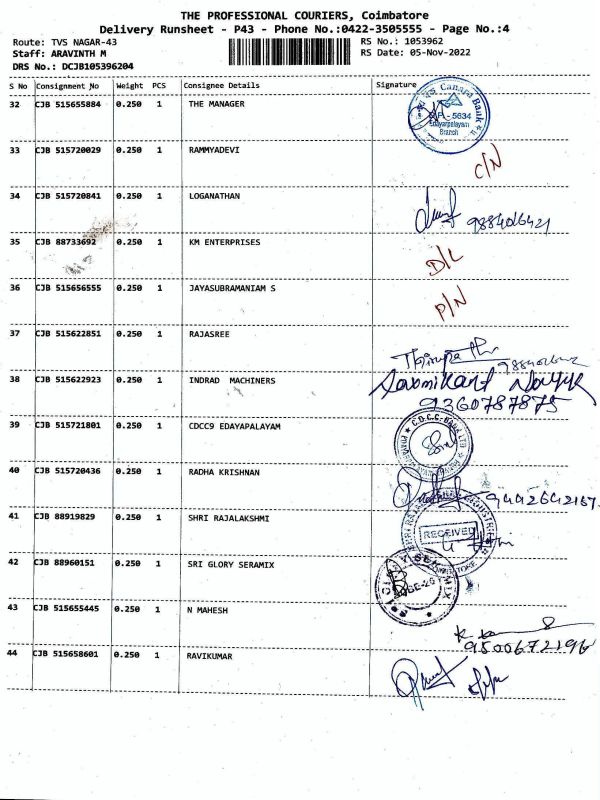 THE PROFESSIONAL COURIERS, Coimbatore
Delivery Runsheet - P43 - Phone No.:0422-3505555 - Page No.:4
Route: TVS NAGAR-43 RS No.: 1053962
Staff: ARAVINTH M RS Date: 05-Nov-2022
DRS No.: DCJB105396204
S No Consignment No Weight PCS Consignee Details Signature
32 CJB 515655884 0.250 1 THE MANAGER
Canara Bank
5634
Edayarpalayam
Branch
33 CJB 515720029 0.250 1 RAMMYADEVI C/N
34 CJB 515720841 0.250 1 LOGANATHAN
9884016421
35 CJB 88733692 0.250 1 KM ENTERPRISES D/L
36 CJB 515656555 0.250 1 JAYASUBRAMANIAM S P/N
37 CJB 515622851 0.250 1 RAJASREE
38 CJB 515622923 0.250 1 INDRAD MACHINERS
9360787875
39 CJB 515721801 0.250 1 CDCC9 EDAYAPALAYAM
40 CJB 515720436 0.250 1 RADHA KRISHNAN 9442642167
41 CJB 88919829 0.250 1 SHRI RAJALAKSHMI
RECEIVED
42 CJB 88960151 0.250 1 SRI GLORY SERAMIX
43 CJB 515655445 0.250 1 N MAHESH
9500672196
44 CJB 515658601 0.250 1 RAVIKUMAR